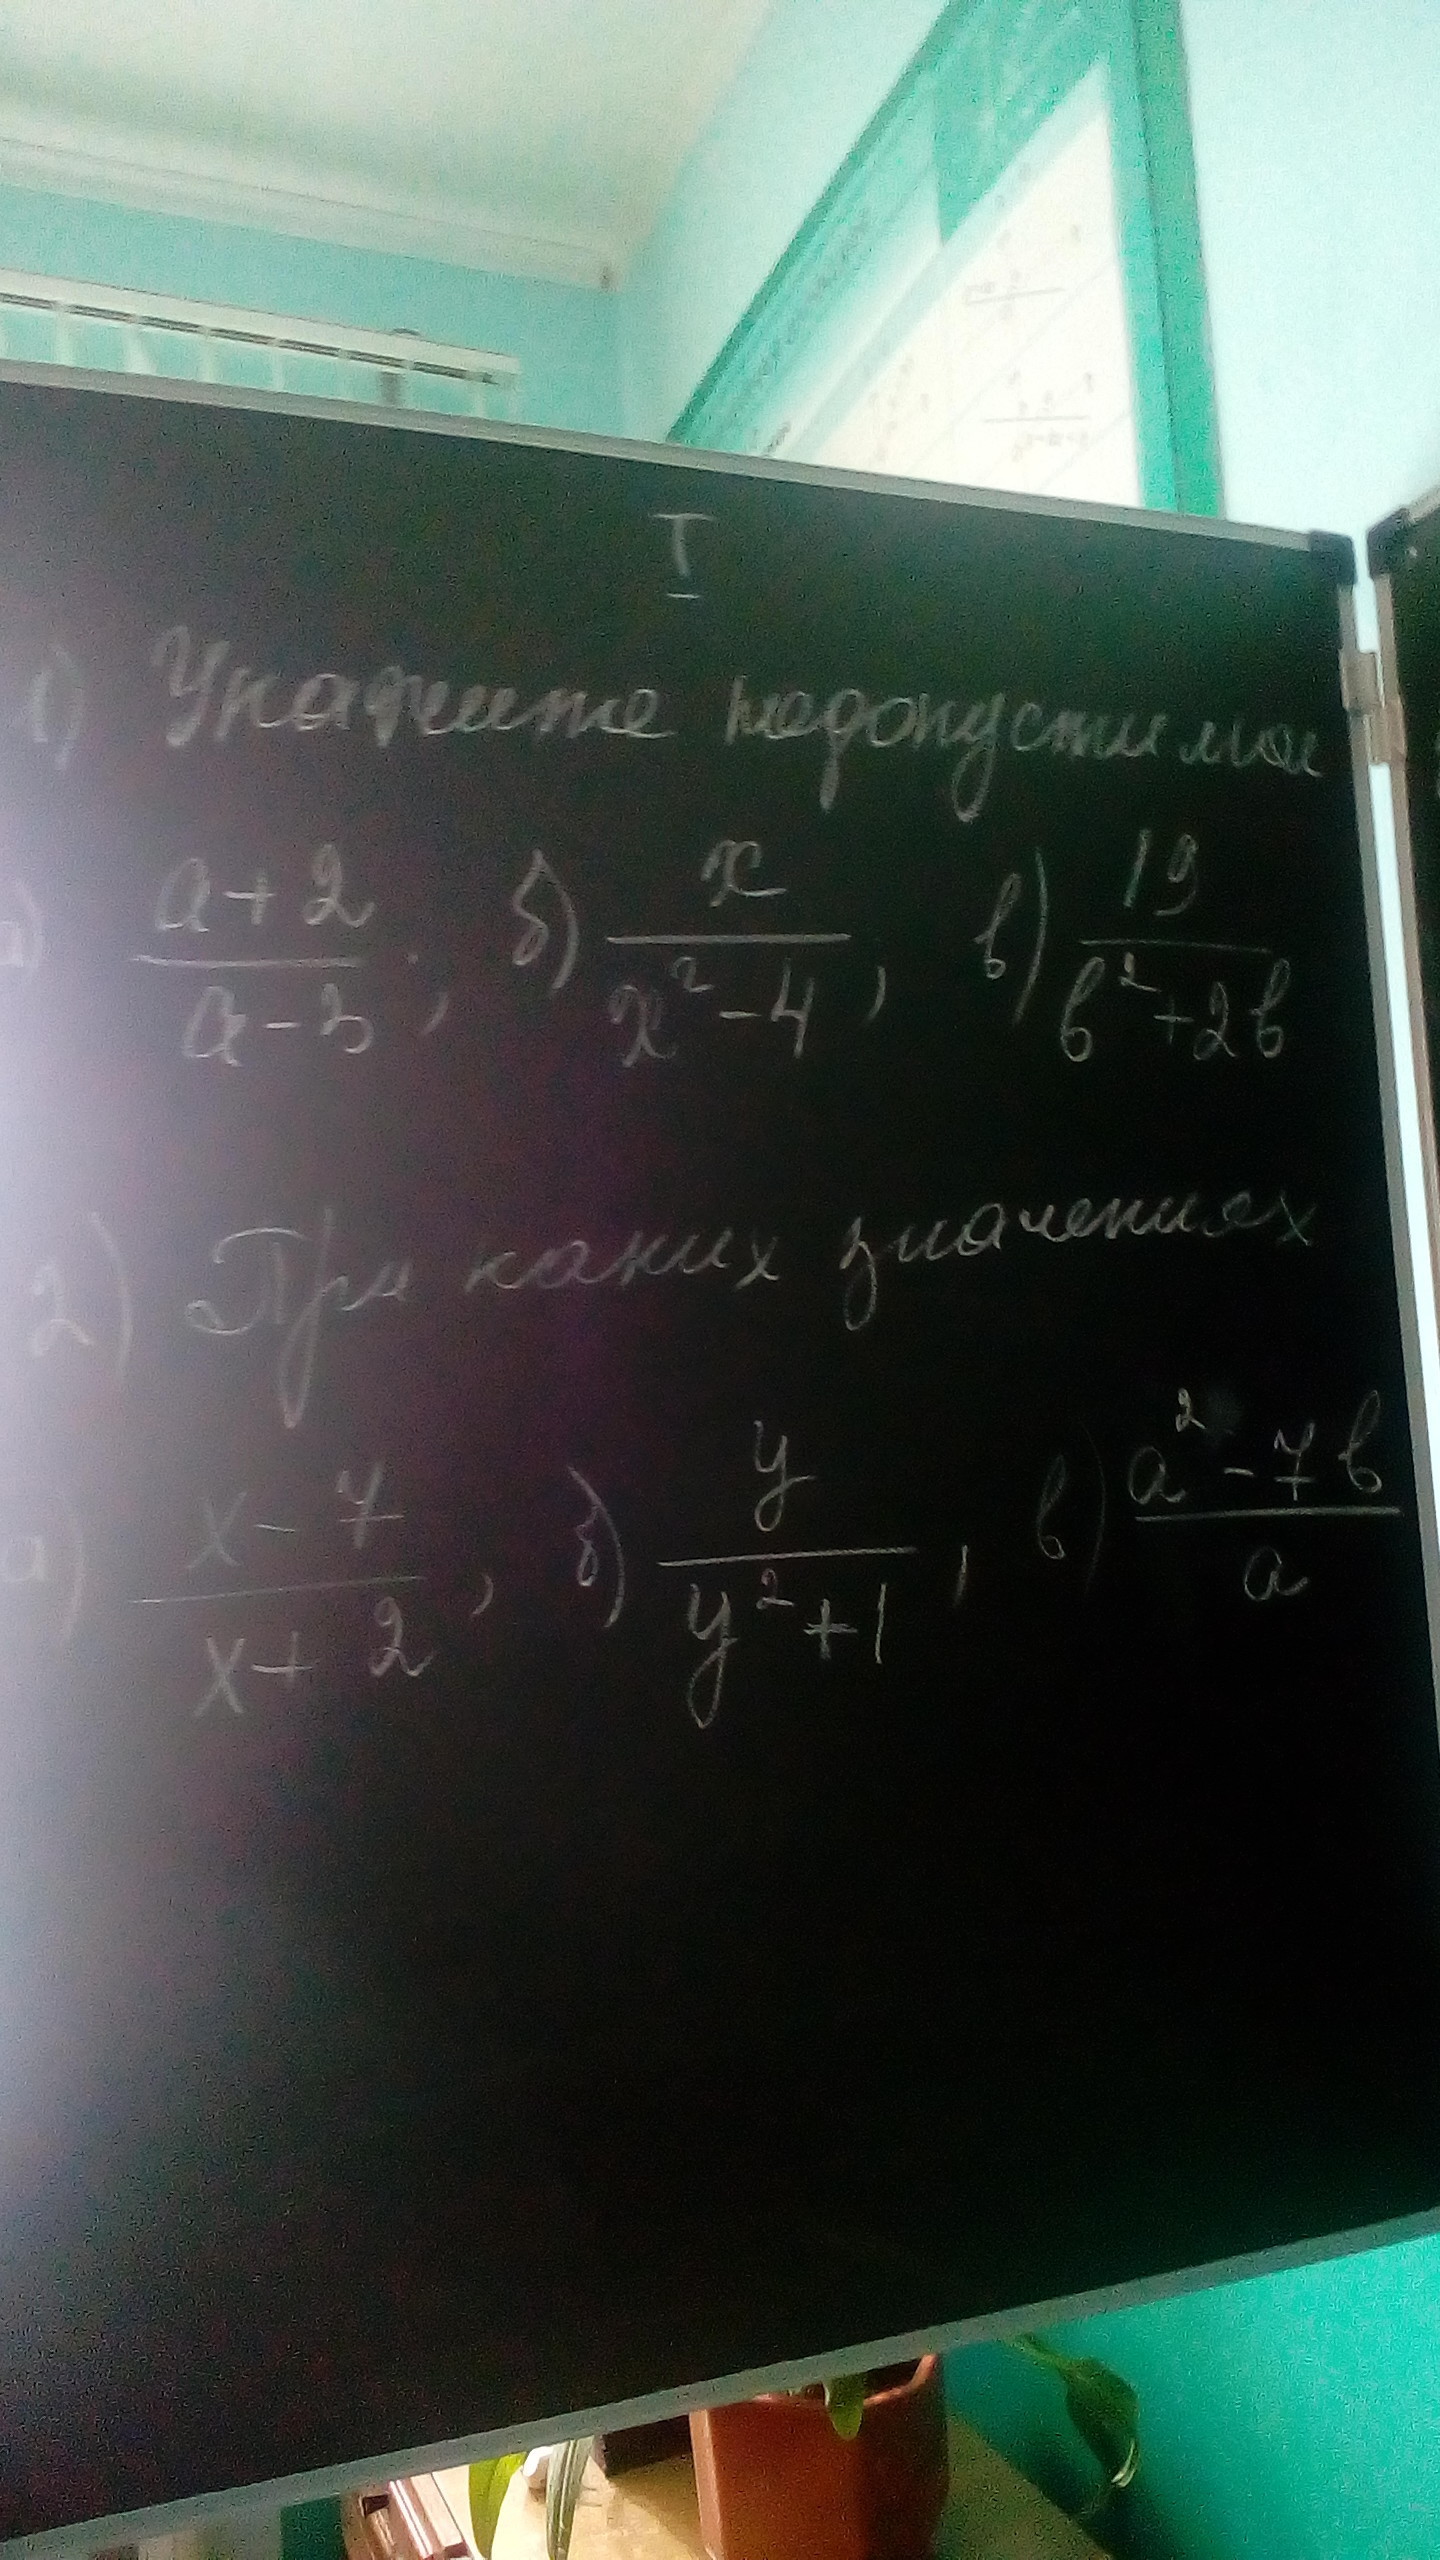 I
1) Укажите недопустимые
а) a+2/a-3, б) x/x²-4, в) 19/b²+2b
2) При каких значениях
а) x-7/x+2, б) y/y²+1, в) a²-7b/a